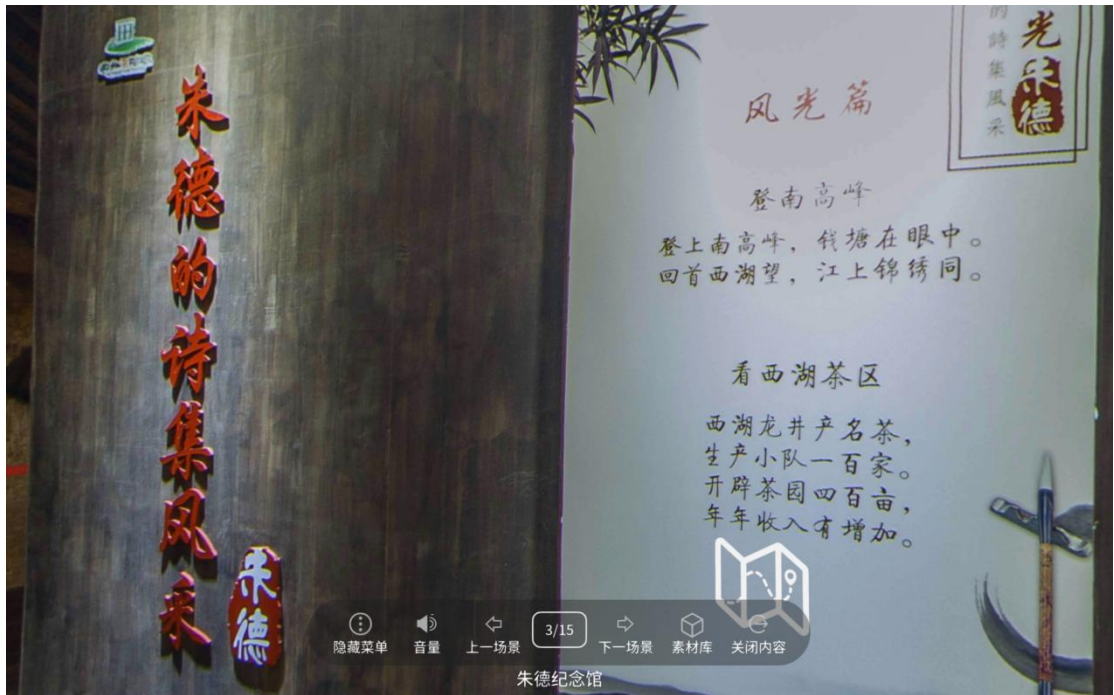 朱德的诗集风采
朱德
光
朱德
的詩集風采
风光篇
登南高峰
登上南高峰，钱塘在眼中。
回首西湖望，江上锦绣同。
看西湖茶区
西湖龙井产名茶，
生产小队一百家。
开辟茶园四百亩，
年年收入有增加。
隐藏菜单
音量
上一场景
3/15
下一场景
素材库
关闭内容
朱德纪念馆